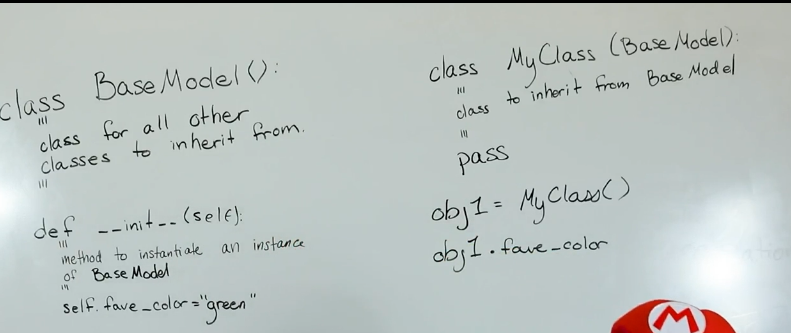 class BaseModel():
"""
class for all other
classes to inherit from.
"""
def __init__(self):
"""
method to instantiate an instance
of BaseModel
"""
self.fave_color="green"
class MyClass (BaseModel):
"""
class to inherit from BaseModel
"""
pass
obj1 = MyClass()
obj1.fave_color
M